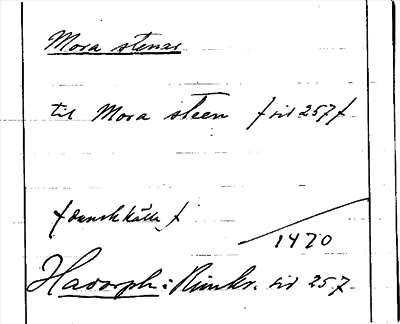 Mora stenar
til Mora steen / sid 257 /
/ dansk källa /
1470
Hadorph: Rimkr. sid 257.